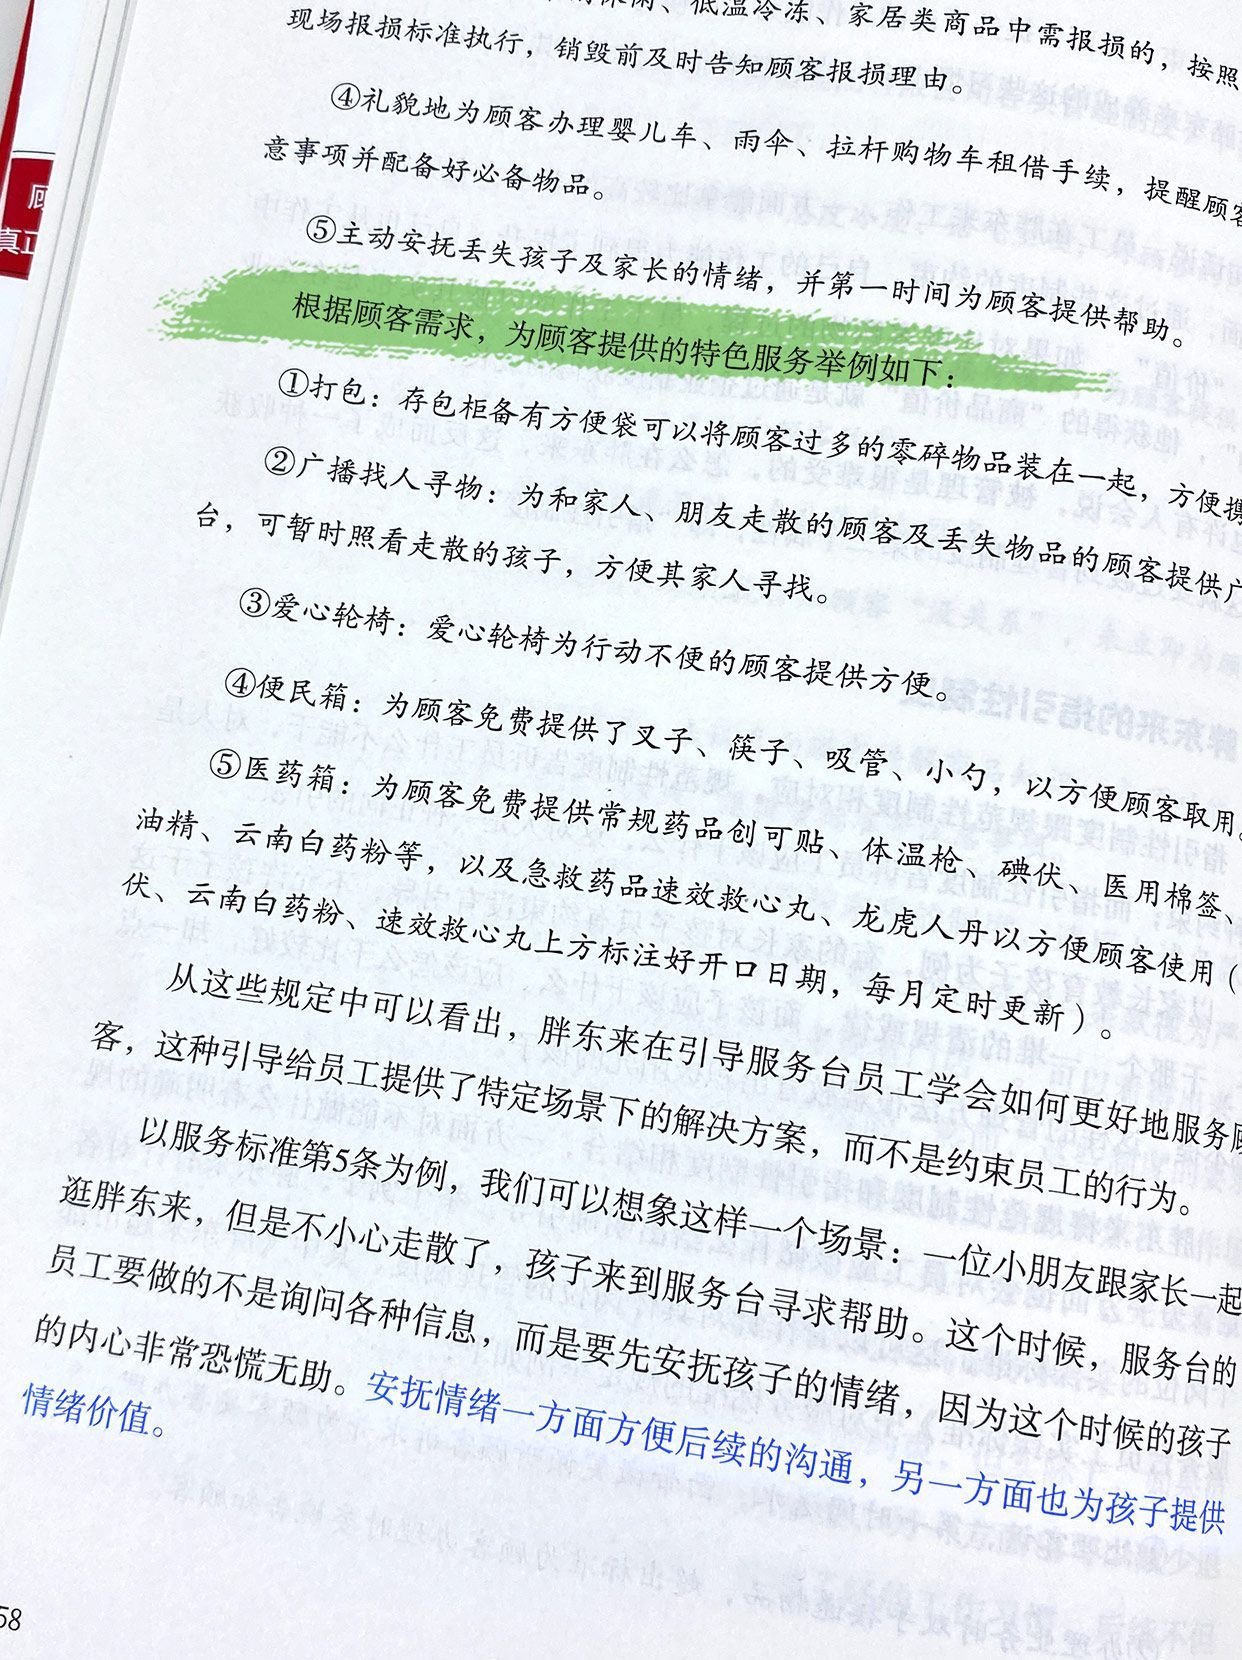 低温冷冻、家居类商品中需报损的，按照
现场报损标准执行，销毁前及时告知顾客报损理由。
④礼貌地为顾客办理婴儿车、雨伞、拉杆购物车租借手续，提醒顾客
意事项并配备好必备物品。
⑤主动安抚丢失孩子及家长的情绪，并第一时间为顾客提供帮助。
根据顾客需求，为顾客提供的特色服务举例如下：
①打包：存包柜备有方便袋可以将顾客过多的零碎物品装在一起，方便携
②广播找人寻物：为和家人、朋友走散的顾客及丢失物品的顾客提供广
台，可暂时照看走散的孩子，方便其家人寻找。
③爱心轮椅：爱心轮椅为行动不便的顾客提供方便。
④便民箱：为顾客免费提供了叉子、筷子、吸管、小勺，以方便顾客取用。
⑤医药箱：为顾客免费提供常规药品创可贴、体温枪、碘伏、医用棉签、
油精、云南白药粉等，以及急救药品速效救心丸、龙虎人丹以方便顾客使用（
伏、云南白药粉、速效救心丸上方标注好开口日期，每月定时更新）。
从这些规定中可以看出，胖东来在引导服务台员工学会如何更好地服务顾
客，这种引导给员工提供了特定场景下的解决方案，而不是约束员工的行为。
以服务标准第5条为例，我们可以想象这样一个场景：一位小朋友跟家长一起
逛胖东来，但是不小心走散了，孩子来到服务台寻求帮助。这个时候，服务台的
员工要做的不是询问各种信息，而是要先安抚孩子的情绪，因为这个时候的孩子
的内心非常恐慌无助。安抚情绪一方面方便后续的沟通，另一方面也为孩子提供
情绪价值。
58
顾
真正